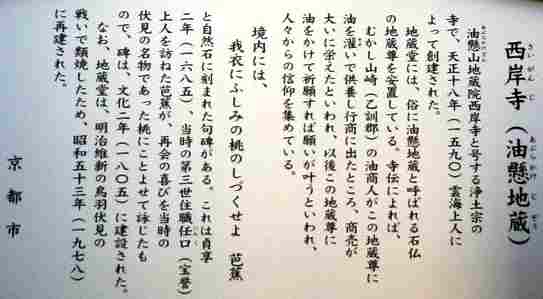 西岸寺（油懸地蔵）
さいがんじ あぶらかけじぞう
油懸山地蔵院西岸寺と号する浄土宗の
寺で、天正十八年（一五九〇）雲海上人に
よって創建された。
地蔵堂には、俗に油懸地蔵と呼ばれる石仏
の地蔵尊を安置している。寺伝によれば、
むかし山崎（乙訓郡）の油商人がこの地蔵尊に
油を灌いで供養し行商に出たところ、商売が
大いに栄えたといわれ、以後この地蔵尊に
油をかけて祈願すれば願いが叶うといわれ、
人々からの信仰を集めている。
境内には、
我衣にふしみの桃のしづくせよ 芭蕉
と自然石に刻まれた句碑がある。これは貞享
二年（一六八五）、当時の第三世住職任口（宝誉）
上人を訪ねた芭蕉が、再会の喜びを当時の
伏見の名物であった桃にことよせて詠じたも
ので、碑は、文化二年（一八〇五）に建設された。
なお、地蔵堂は、明治維新の鳥羽伏見の
戦いで類焼したため、昭和五十三年（一九七八）
に再建された。
京都市